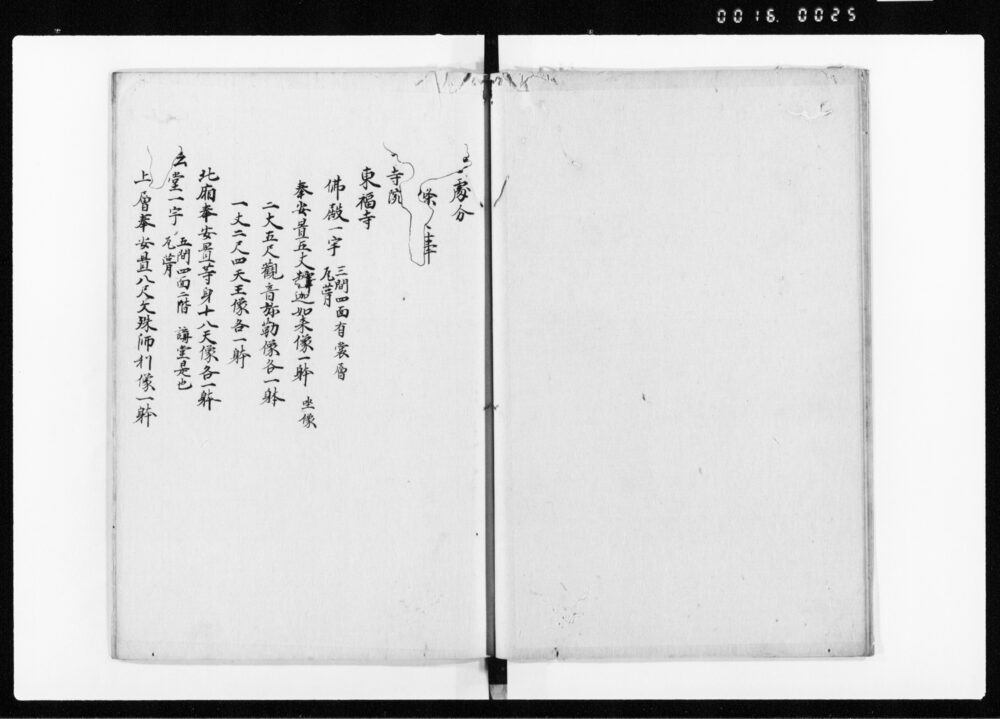 0016. 0025
處分
條 事
寺院
東福寺
佛殿一宇 三間四面有裳層
瓦葺
奉安置五丈釋迦如来像一躰 坐像
二丈五尺觀音弥勒像各一躰
一丈二尺四天王像各一躰
北廂奉安置等身十八天像各一躰
法堂一宇 五間四面二階 講堂是也
瓦葺
上層奉安置八尺文殊師利像一躰